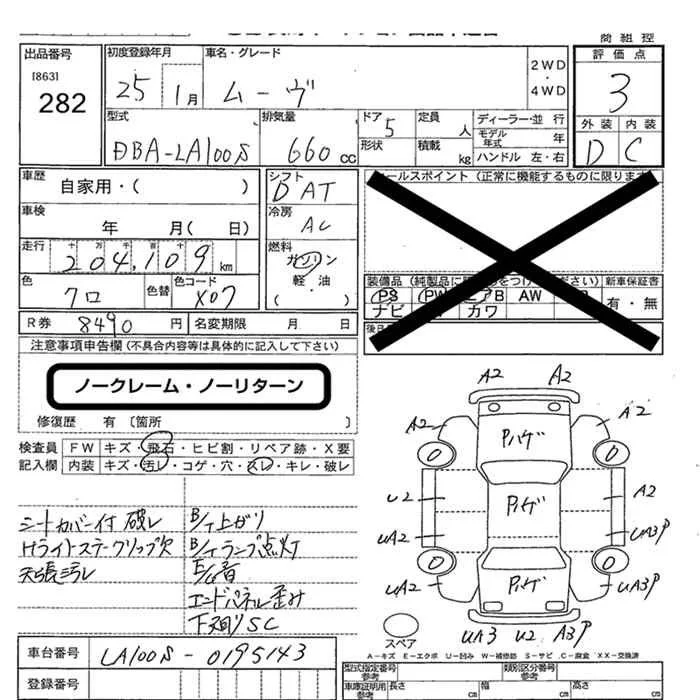 商 組 控
出品番号
[863]
282
初度登録年月
25 1月
車名・グレード
ムーヴ
2WD
・
4WD
評 価 点
3
外 装 内 装
D C
型式
DBA-LA100S
排気量
660 cc
ドア 5
形状
定員 人
積載 kg
ディーラー・並 行
モデル年式 年
ハンドル 左・右
車歴
自家用・( )
シフト
D AT
セールスポイント (正常に機能するものに限ります
車検
年 月( 日)
冷房
AC
走行
十 万 千 百 十
204,109 km
燃料
ガソリン
軽 油
( )
色
クロ
色替
色コード
X07
装備品 (純製品に をつけ ください)
新車保証書
PS PW エアB AW
ナビ カワ
有・無
R券 8490 円
名変期限 月 日
後日
注意事項申告欄 (不具合内容等は具体的に記入して下さい)
ノークレーム・ノーリターン
修復歴 有 〔箇所 〕
検査員
記入欄
FW キズ・飛石・ヒビ割・リペア跡・X要
内装 キズ・汚レ・コゲ・穴・スレ・キレ・破レ
シートカバー付 破レ
Hライトステークリップ欠
天張汚レ
B/T上がり
B/Tランプ点灯
E/G音
エンドパネル歪み
下廻りSC
A2 A2
A2 A2
Pハゲ
U2 A2
Pハゲ
UA2 UA3P
Pハゲ
UA2 UA3P
UA3 U2 A3P
スペア
A－キズ E－エクボ U－凹み W－補修跡 S－サビ C－腐食 XX－交換済
車台番号
LA100S-0195143
登録番号
型式指定番号
参考
類別区分番号
参考
車庫証明用
参考
長さ cm
幅 cm
高さ cm